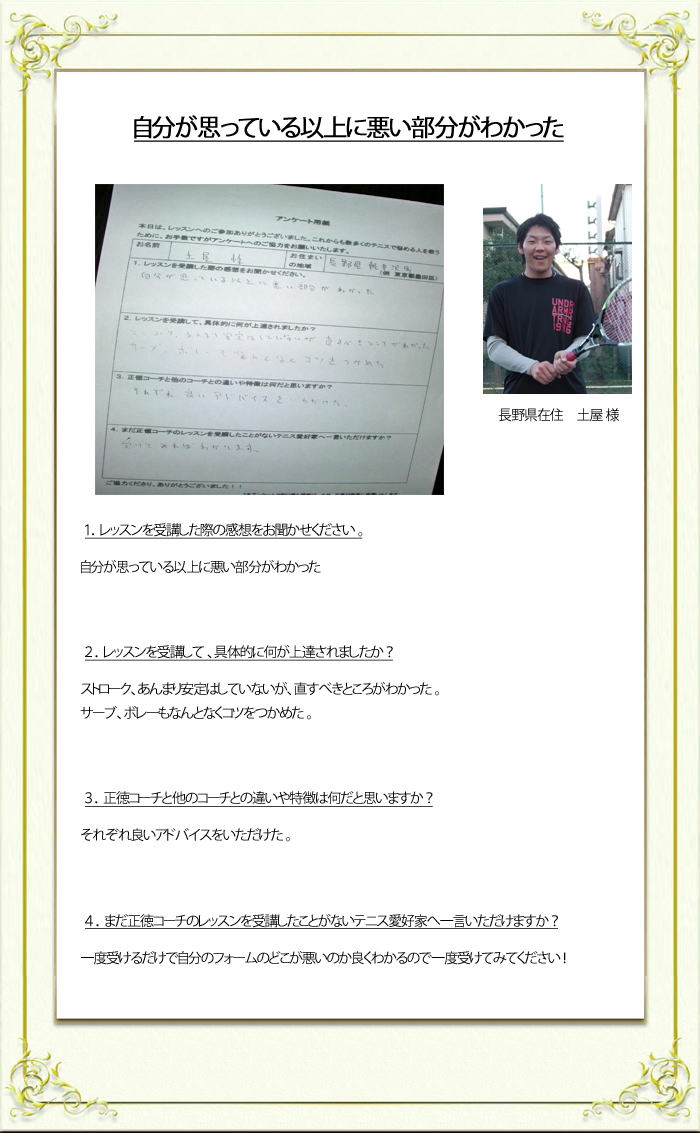 自分が思っている以上に悪い部分がわかった
アンケート用紙
本日は、レッスンへのご参加ありがとうございました。これからも数多くのテニスで悩める人を救う
ために、お手数ですがアンケートへのご協力をお願いいたします。
お名前
お住まい
の地域
長野県
(例 東京都墨田区)
1. レッスンを受講した際の感想をお聞かせください。
自分が思っている以上に悪い部分がわかった
2. レッスンを受講して、具体的に何が上達されましたか?
サーブ、ボレーもなんとなくコツをつかめた
3. 正徳コーチと他のコーチとの違いや特徴は何だと思いますか?
それぞれ良いアドバイスをいただけた。
4. まだ正徳コーチのレッスンを受講したことがないテニス愛好家へ一言いただけますか?
受けてみればわかります。
ご協力くださり、ありがとうございました!!
UND
ARM
TRE
1996
長野県在住 土屋 様
1. レッスンを受講した際の感想をお聞かせください。
自分が思っている以上に悪い部分がわかった
2. レッスンを受講して、具体的に何が上達されましたか?
ストローク、あんまり安定はしていないが、直すべきところがわかった。
サーブ、ボレーもなんとなくコツをつかめた。
3. 正徳コーチと他のコーチとの違いや特徴は何だと思いますか?
それぞれ良いアドバイスをいただけた。
4. まだ正徳コーチのレッスンを受講したことがないテニス愛好家へ一言いただけますか?
一度受けるだけで自分のフォームのどこが悪いのか良くわかるので一度受けてみてください!